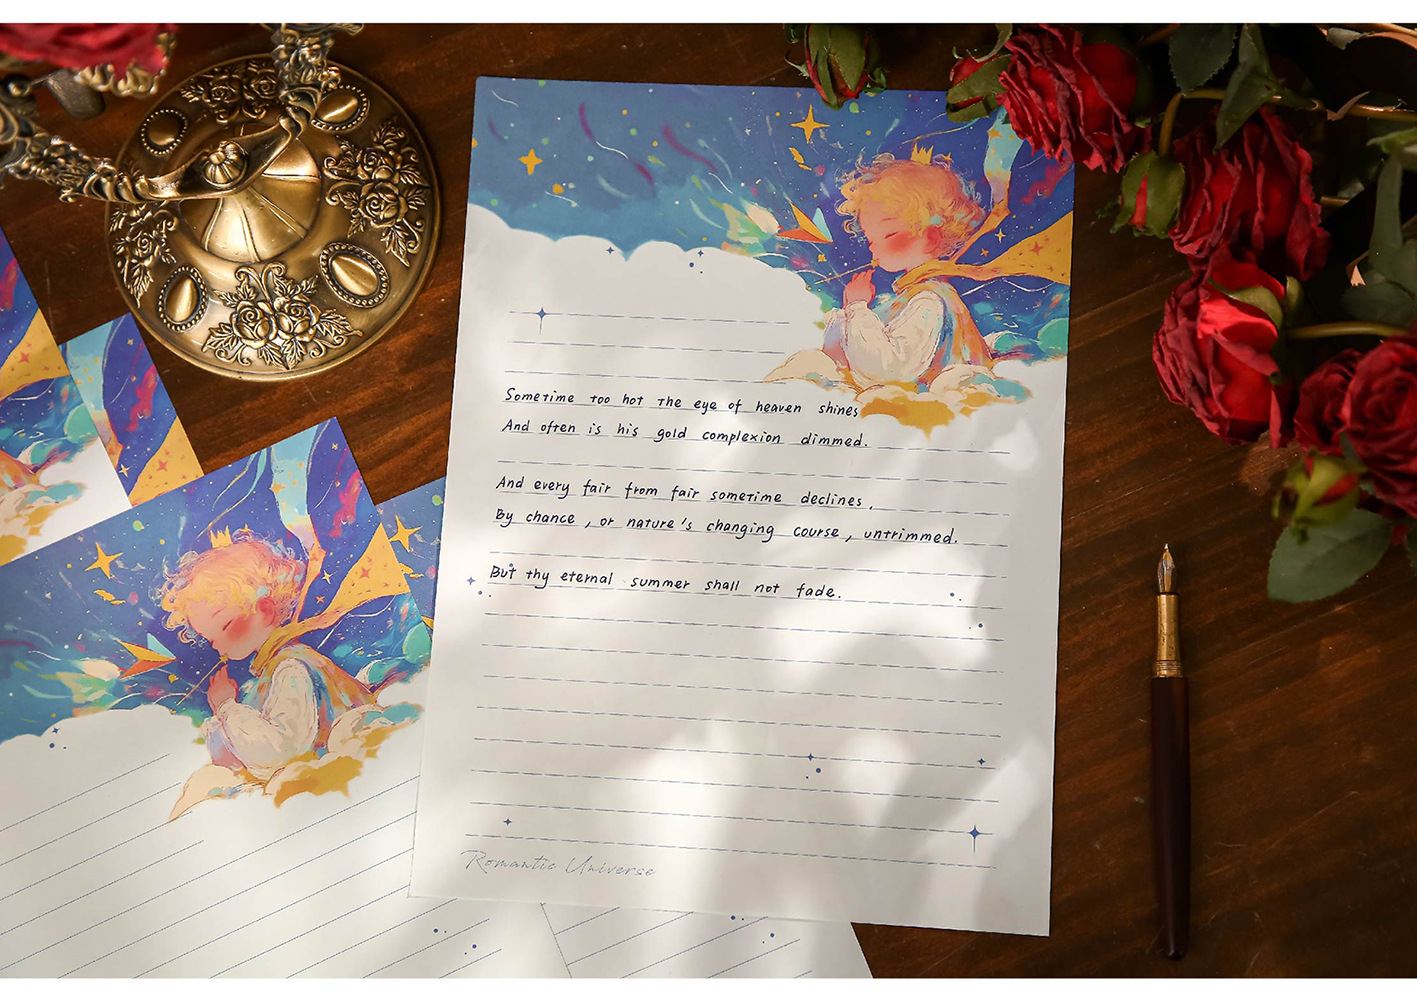 Sometime too hot the eye of heaven shines
And often is his gold complexion dimmed.
And every fair from fair sometime declines,
By chance, or nature's changing course, untrimmed.
But thy eternal summer shall not fade.
Romantic Universe